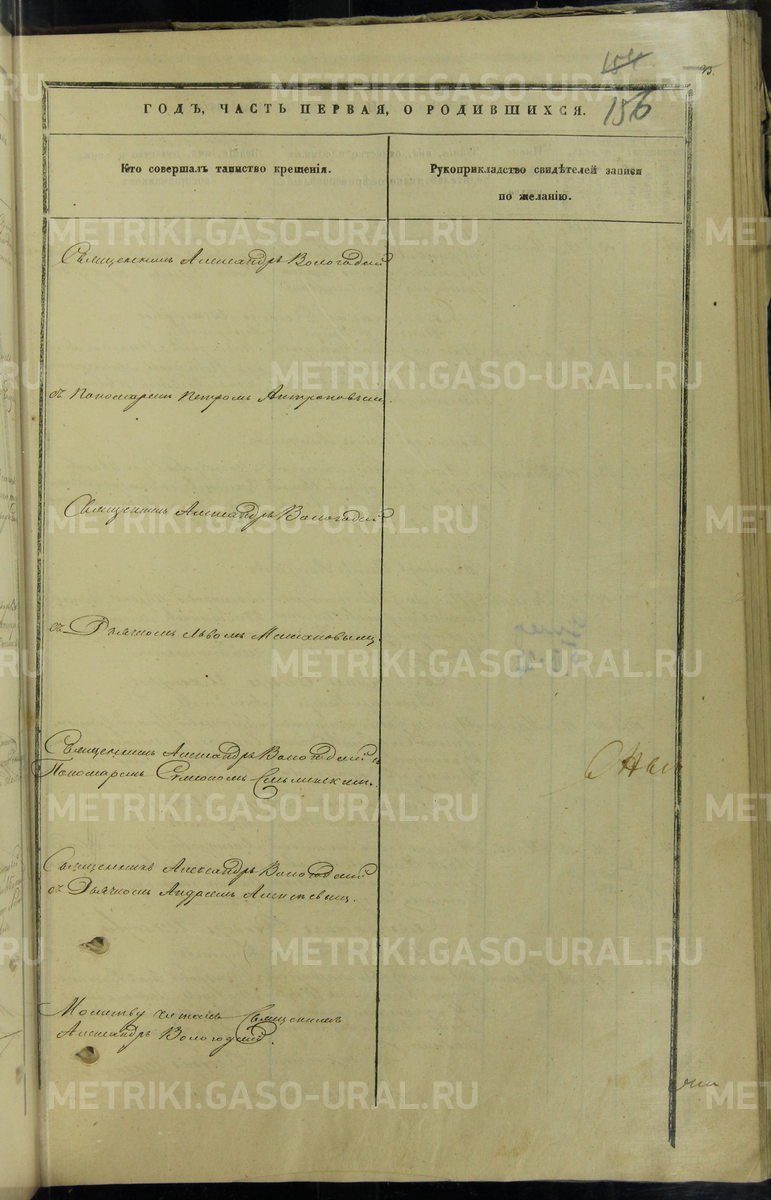 154
156
ГОДЪ, ЧАСТЬ ПЕРВАЯ, О РОДИВШИХСЯ.
Кто совершалъ таинство крещенія.
Рукоприкладство свидѣтелей записи
по желанію.
Священникъ Александръ Вологодскій
съ Пономаремъ Петромъ Антроповымъ.
Священникъ Александръ Вологодскій
съ Дьячкомъ Львомъ
Священникъ Александръ Вологодскій съ
Пономаремъ Симеономъ
Священникъ Александръ Вологодскій
съ Дьячкомъ Андреемъ
Молитву читалъ Священникъ
Александръ Вологодскій.
METRIKI.GASO-URAL.RU